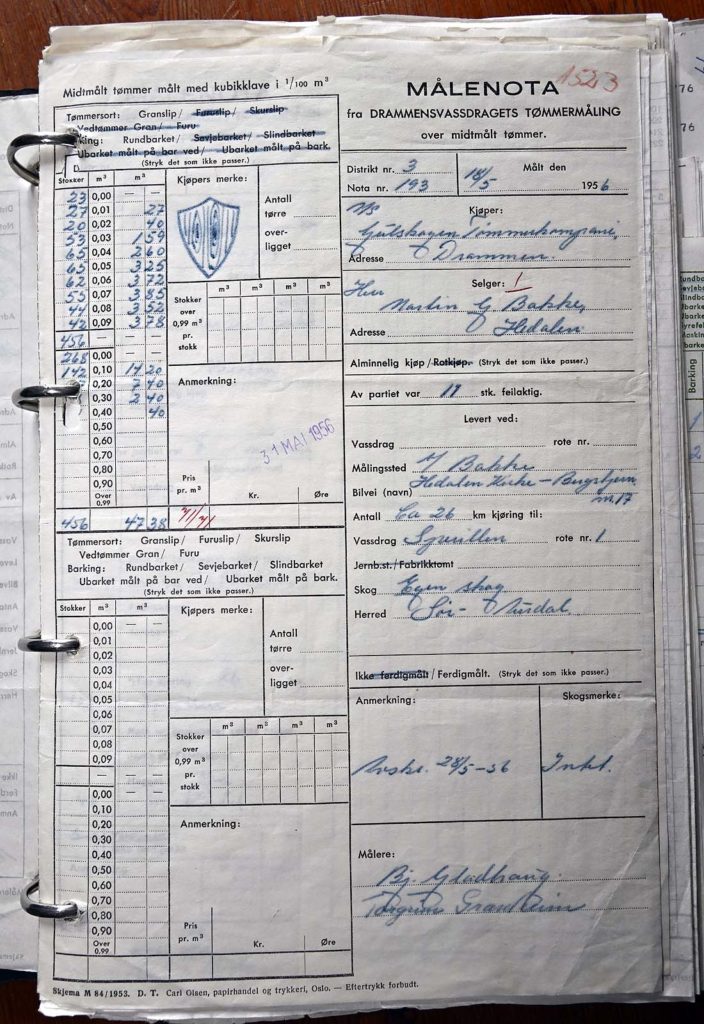 Midtmålt tømmer målt med kubikklave i 1/100 m³
Tømmersort: Granslip/ Furuslip/ Skurslip
Vedtømmer Gran/ Furu
Barking: Rundbarket/ Sevjebarket/ Slindbarket
Ubarket målt på bar ved/ Ubarket målt på bark.
(Stryk det som ikke passer.)
Stokker m³ m³
23 0,00 — —
27 0,01 27
20 0,02 40
53 0,03 159
65 0,04 260
65 0,05 325
62 0,06 372
55 0,07 385
44 0,08 352
42 0,09 378
456 — — —
268 0,00 — —
142 0,10 14 20
0,20 7 40
0,30 2 40
0,40 40
0,50
0,60
0,70
0,80
0,90
Over 0,99
456 47 38
Kjøpers merke:
Antall
tørre
over-
ligget
m³ m³ m³ m³
Stokker
over
0,99 m³
pr.
stokk
Anmerkning:
31 MAI 1956
Pris
pr. m³ Kr. Øre
Tømmersort: Granslip/ Furuslip/ Skurslip
Vedtømmer Gran/ Furu
Barking: Rundbarket/ Sevjebarket/ Slindbarket
Ubarket målt på bar ved/ Ubarket målt på bark.
(Stryk det som ikke passer.)
Stokker m³ m³
0,00 — —
0,01
0,02
0,03
0,04
0,05
0,06
0,07
0,08
0,09
— — —
0,00 — —
0,10
0,20
0,30
0,40
0,50
0,60
0,70
0,80
0,90
Over 0,99
Kjøpers merke:
Antall
tørre
over-
ligget
m³ m³ m³ m³
Stokker
over
0,99 m³
pr.
stokk
Anmerkning:
Pris
pr. m³ Kr. Øre
Skjema M 84/1953. D. T. Carl Olsen, papirhandel og trykkeri, Oslo. — Eftertrykk forbudt.
MÅLENOTA 1523
fra DRAMMENSVASSDRAGETS TØMMERMÅLING
over midtmålt tømmer.
Distrikt nr. 3
Nota nr. 193
18/5 Målt den
1956
Kjøper:
Tømmerkompani,
Adresse Drammen.
Selger: 1
Herr
Martin G. Bakke,
Adresse Hedalen
Alminnelig kjøp/Rotkjøp. (Stryk det som ikke passer.)
Av partiet var 17 stk. feilaktig.
Levert ved:
Vassdrag rote nr.
Målingssted Bakke
Bilvei (navn) Hedalen Kirke – m. 17
Antall Ca 26 km kjøring til:
Vassdrag Sperillen rote nr. 1
Jernb.st./Fabrikktomt
Skog Egen skog
Herred Sør- Aurdal.
Ikke ferdigmålt/Ferdigmålt. (Stryk det som ikke passer.)
Anmerkning:
Avskr. 28/5-56
Skogsmerke:
Inkl.
Målere:
Bj. Gladhaug.
Barking